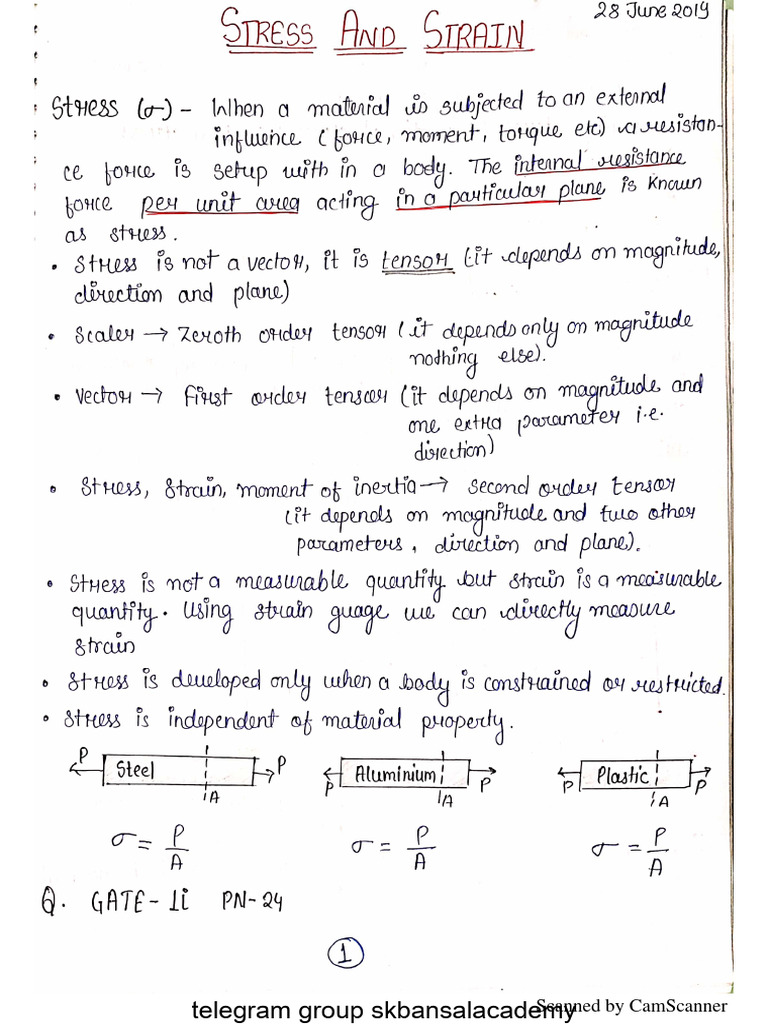 28 June 2019
STRESS AND STRAIN
Stress (σ) - When a material is subjected to an external
influence (force, moment, torque etc) a resistan-
ce force is setup with in a body. The internal resistance
force per unit area acting in a particular plane is known
as stress.
• Stress is not a vector, it is tensor (it depends on magnitude,
direction and plane)
• Scaler → Zeroth order tensor (it depends only on magnitude
nothing else).
• Vector → First order tensor (it depends on magnitude and
one extra parameter i.e.
direction)
• Stress, Strain, moment of inertia → second order tensor
(it depends on magnitude and two other
parameters, direction and plane).
• Stress is not a measurable quantity but strain is a measurable
quantity. Using strain guage we can directly measure
strain
• Stress is developed only when a body is constrained or restricted.
• Stress is independent of material property.
P Steel P A
P Aluminium P A
P Plastic P A
σ = P/A σ = P/A σ = P/A
Q. GATE-Ii PN-24
1
telegram group skbansalacademy
Scanned by CamScanner